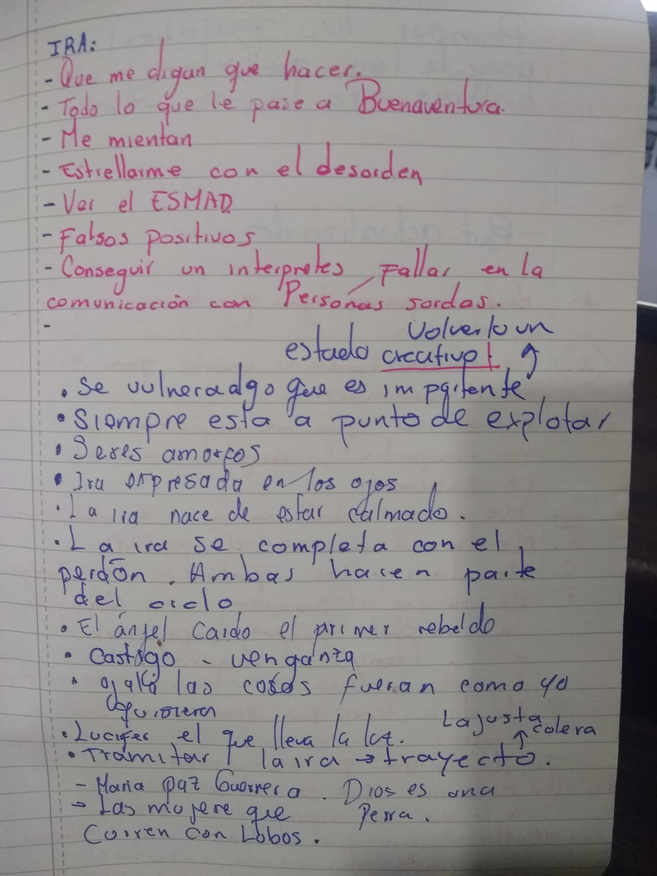 IRA:
- Que me digan que hacer.
- Todo lo que le pase a Buenaventura.
- Me mientan
- Estrellarme con el desorden
- Ver el ESMAD
- Falsos positivos
- Conseguir un interpretes / Fallar en la
comunicación con Personas sordas.
-
Volverlo un
estado creativo!
• Se vulnera algo que es importente
• Siempre esta a punto de explotar
• Seres amorfos
• Ira expresada en los ojos
• La ira nace de estar calmado.
• La ira se completa con el
perdón. Ambas hacen parte
del ciclo
• El ángel Caido el primer rebelde
• Castigo - venganza
• ojalá las cosas fueran como yo
quisiera
• Lucifer el que lleva la luz.
La justa colera
• Tramitar la ira → trayecto.
- Maria paz Guerrero. Dios es una
perra.
→ Las mujere que
Corren con Lobos.